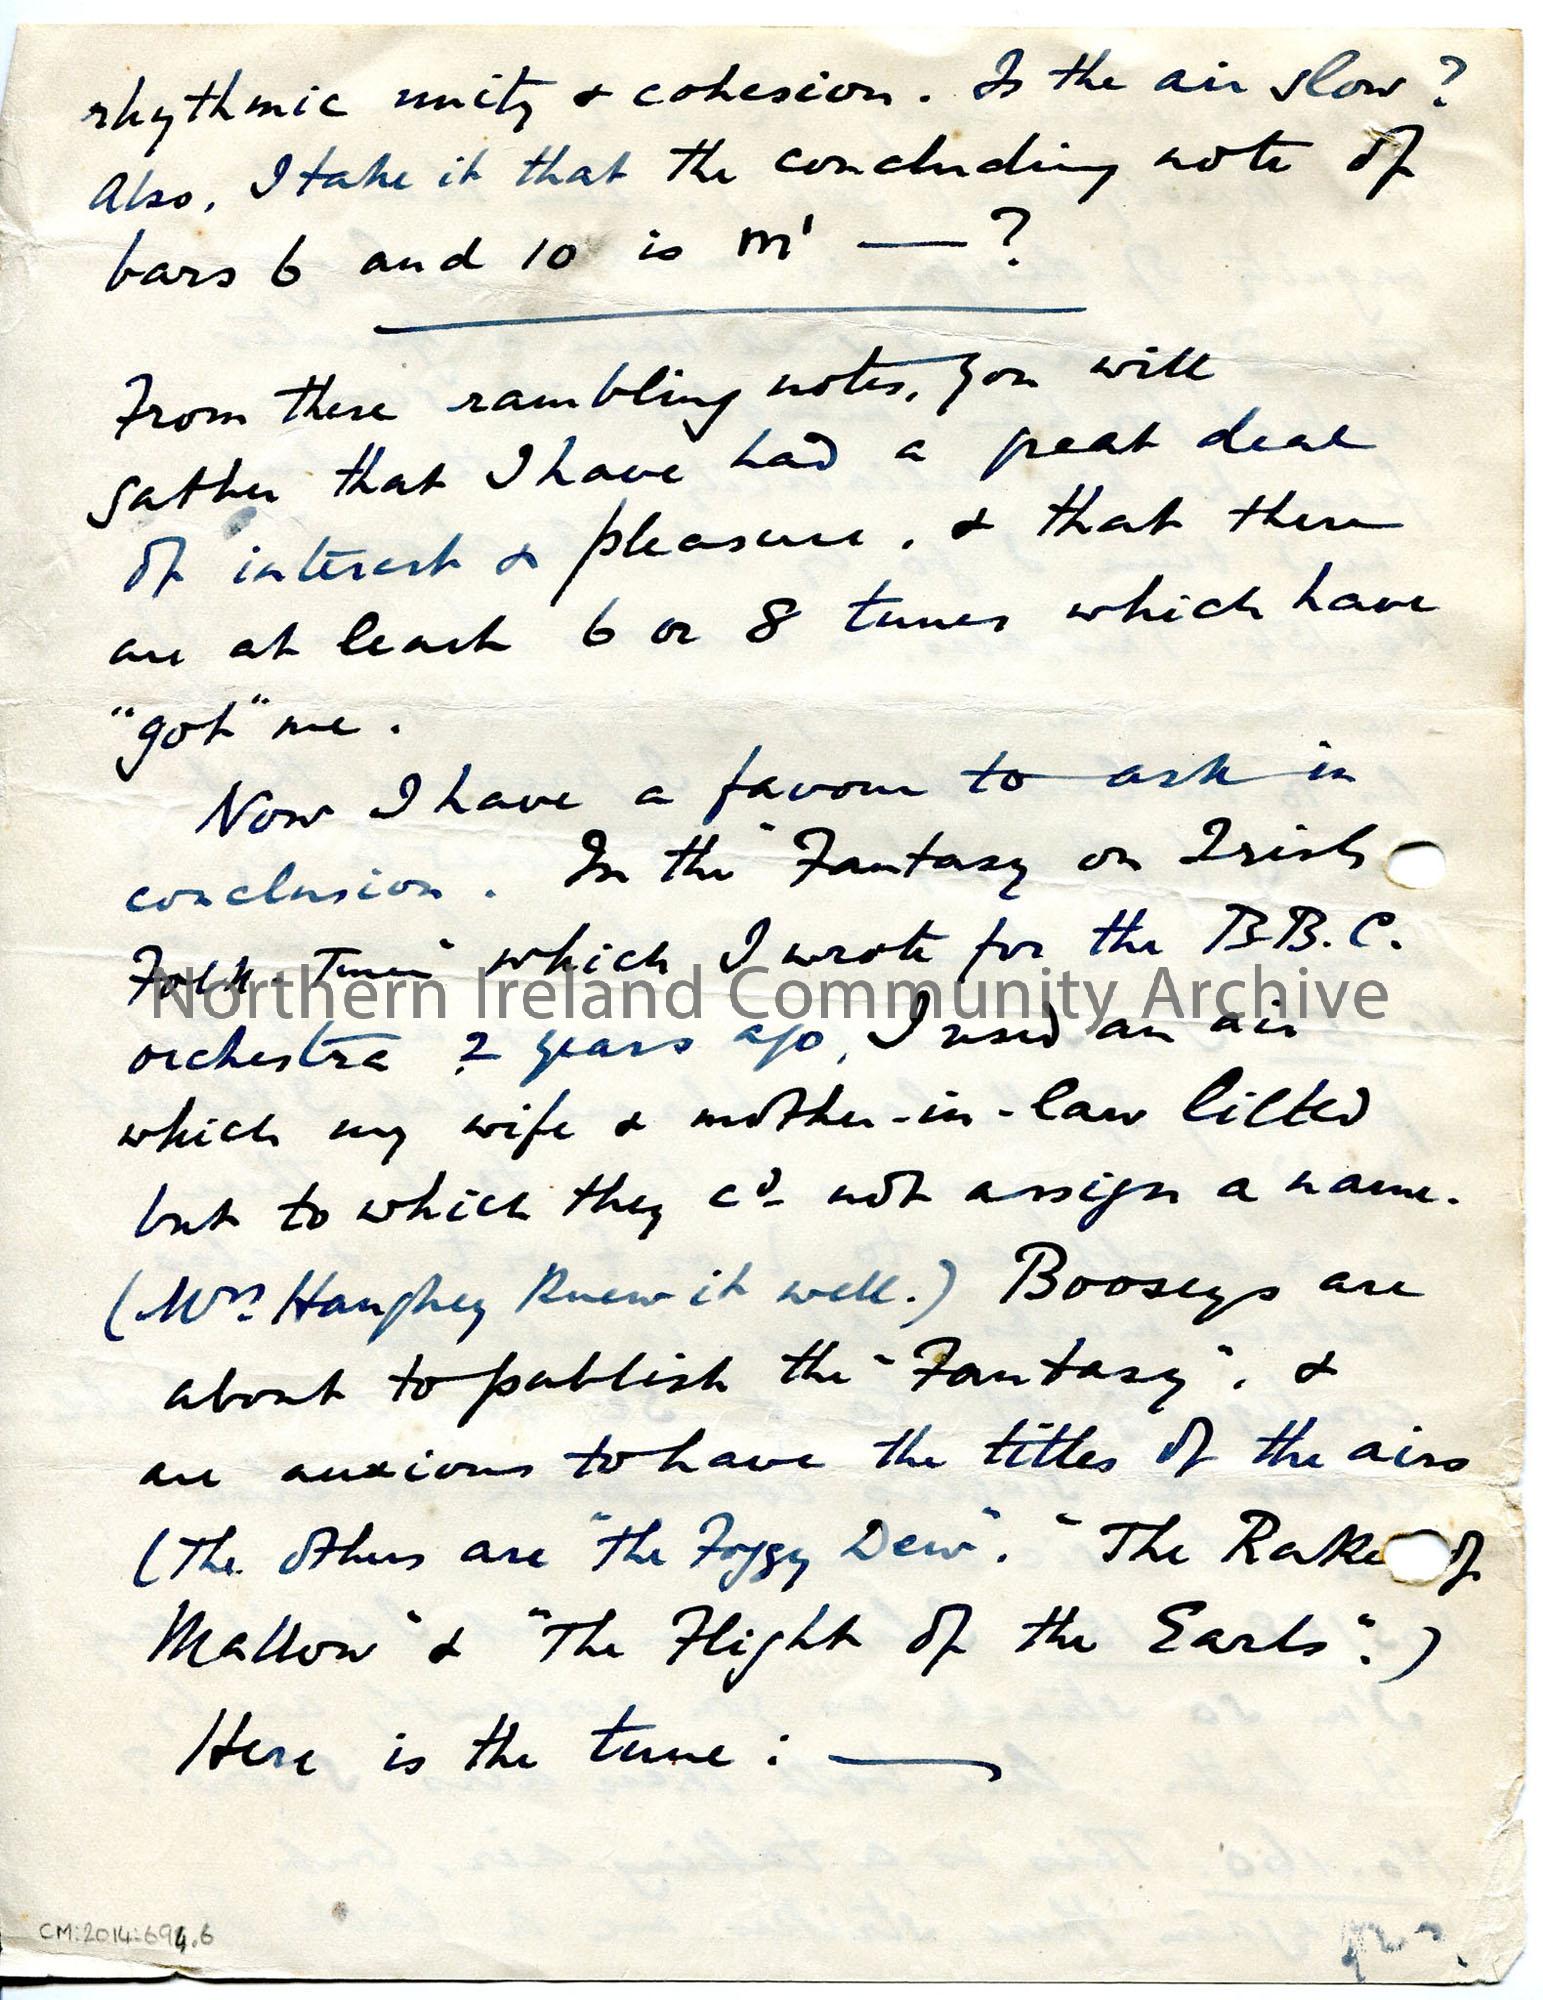 rhythmic unity & cohesion. Is the air slow?
Also, I take it that the concluding note of
bars 6 and 10 is m' —?
From these rambling notes, you will
gather that I have had a great deal
of interest & pleasure, & that there
are at least 6 or 8 tunes which have
"got" me.
Now I have a favour to ask in
conclusion. In the "Fantasy on Irish
Folk-Tunes" which I wrote for the B.B.C.
Northern Ireland Community Archive
orchestra 2 years ago, I used an air
which my wife & mother-in-law lilted
but to which they cd not assign a name.
(Mrs. Haughey knew it well.) Booseys are
about to publish the "Fantasy", &
are anxious to have the titles of the airs
(The others are "The Foggy Dew", "The Rakes of
Mallow" & "The Flight of the Earls".)
Here is the tune: —
CM:2014:694.6